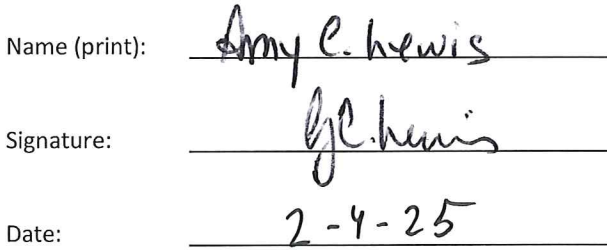 Name (print): Amy C. Lewis
Signature: C. Lewis
Date: 2-4-25